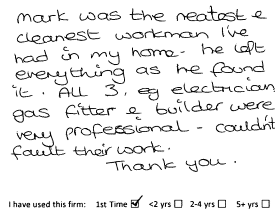 mark was the neatest &
cleanest workman I've
had in my home - he left
everything as he found
it. ALL 3, eg electrician,
gas fitter & builder were
very professional - couldn't
fault their work.
Thank you.
I have used this firm: 1st Time ☑ <2 yrs ☐ 2-4 yrs ☐ 5+ yrs ☐